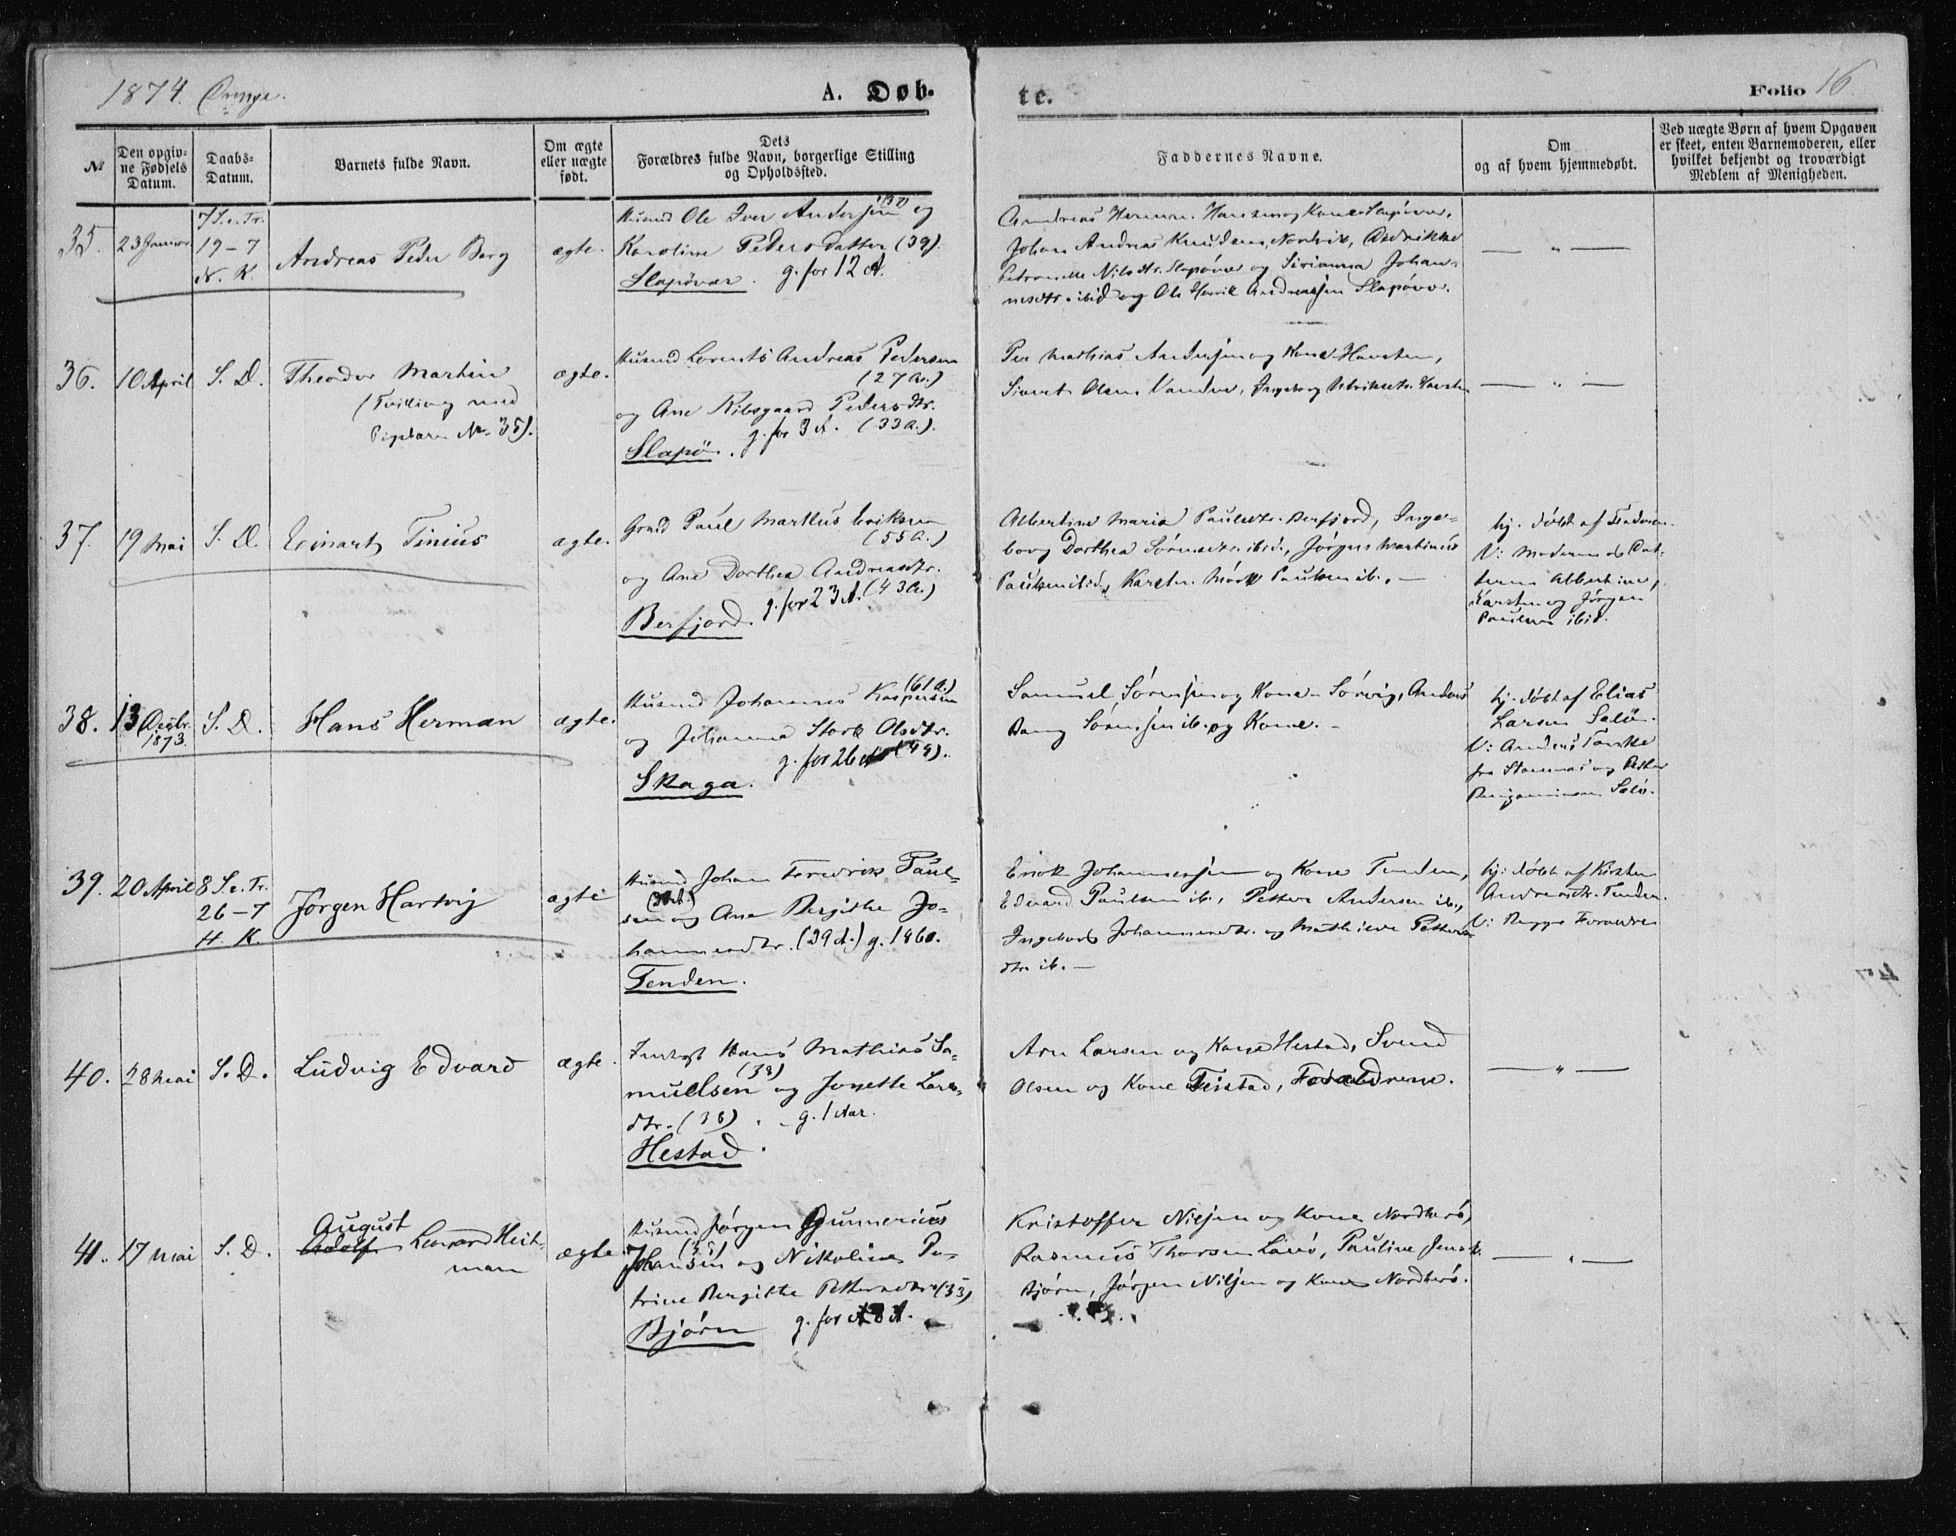 1874. Drenge.
A. Døb-
te.
Folio 16
№
Den opgiv-
ne Fødsels
Datum.
Daabs-
Datum.
Barnets fulde Navn.
Om ægte
eller uægte
født.
Dets
Forældres fulde Navn, borgerlige Stilling
og Opholdssted.
Faddernes Navne.
Om
og af hvem hjemmedøbt.
Ved uægte Børn af hvem Opgaven
er skeet, enten Barnemoderen, eller
hvilket bekjendt og troværdigt
Medlem af Menigheden.
35.
23 Januar
7 S. e. Tr.
19-7
N. K.
Andreas Peder Berg
ægte.
Husmd Ole Iver Andersen (37) og
Karoline Pedersdatter (39).
Slapøvær. g. for 12 A.
Andreas Herm. Hansen og Kone Slapøvær,
Johan Andreas Knudsen Nordvik,
Petronelle Nilsdtr. Slapøvær og Sirianna Johan-
nesdtr. ibid og Ole Henrik Andreassen Slapøvær.
— " —
36.
10 April
S. D.
Theodor Martin
(Tvilling med
Pigebarn No. 35).
ægte.
Husmd Lorents Andreas Pedersen
(27 A.)
og Ane Nilsgaard Pedersdtr.
g. for 3 A. (33 A.).
Slapø.
Per Mathias Andersen og Kone Havsten,
Sivert Olsen Vandve, Ingeborg
— " —
37.
19 Mai
S. D.
Einart Tinius
ægte.
Grmd Paul Markus Eriksen
(55 A.)
og Ane Dorthea Andreasdtr.
g. for 23 A. (43 A.)
Berfjord.
Albertine Maria Paulsdtr. Berfjord, Inge-
borg Dorthea Sørensdtr. ibid., Jørgen Martinus
Paulsen ibid, Karsten Mørk Paulsen ib. —
hj. døbt af
V: Moderen og Dat-
teren Albertine,
Karsten og Jørgen
Paulsen ibid.
38.
13 Decbr.
1873.
S. D.
Hans Herman
ægte.
Husmd Johannes Kaspersen (61 A.)
og Johanna Stork Olsdtr.
g. for 26 A (49).
Skaga.
Samuel Sørensen og Kone Sørvig, Anders
Bang Sørensen ib. og Kone. —
hj. døbt af Elias
Larsen Salø.
V: Anders Tonske
fra Stamnes og Petter
Benjaminsen Salø.
39.
20 April
8 S. e. Tr.
26-7
H. K.
Jørgen Hartvig
ægte
Husmd Johan Fredrik Paul-
sen og Ane Bergithe Jo-
hannesdtr. (39 A.) g. 1860.
Tenden.
Erick Johannessen og Kone Tenden,
Edvard Paulsen ib., Petter Andersen ib.,
Ingeborg Johannesdtr. og Mathilde Petters-
dtr. ib. —
hj. døbt af Kirsten
Andreasdtr. Tenden.
V: Begge Forældre
40.
28 Mai
S. D.
Ludvig Edvard
ægte.
Indgt Hans Mathias Sa-
muelsen (38) og Josette Lars-
dtr. (36). g. 1 Aar.
Hestad.
Arn Larsen og Kone Hestad, Svend
Olsen og Kone Teistad, Forældrene.
— " —
41.
17 Mai
S. D.
August
Adolf Leonard Heit-
man
ægte
Husmd Jørgen Gunnerius
Johansen (35) og Nikoline Pe-
trine Bergithe Pettersdtr. (33)
Bjørn g. for 8 A.
Kristoffer Nilsen og Kone Nordherø,
Rasmus Thorsen Løvø, Pauline Jensdtr.
Bjørn, Jørgen Nilsen og Kone Nordherø.
— " —